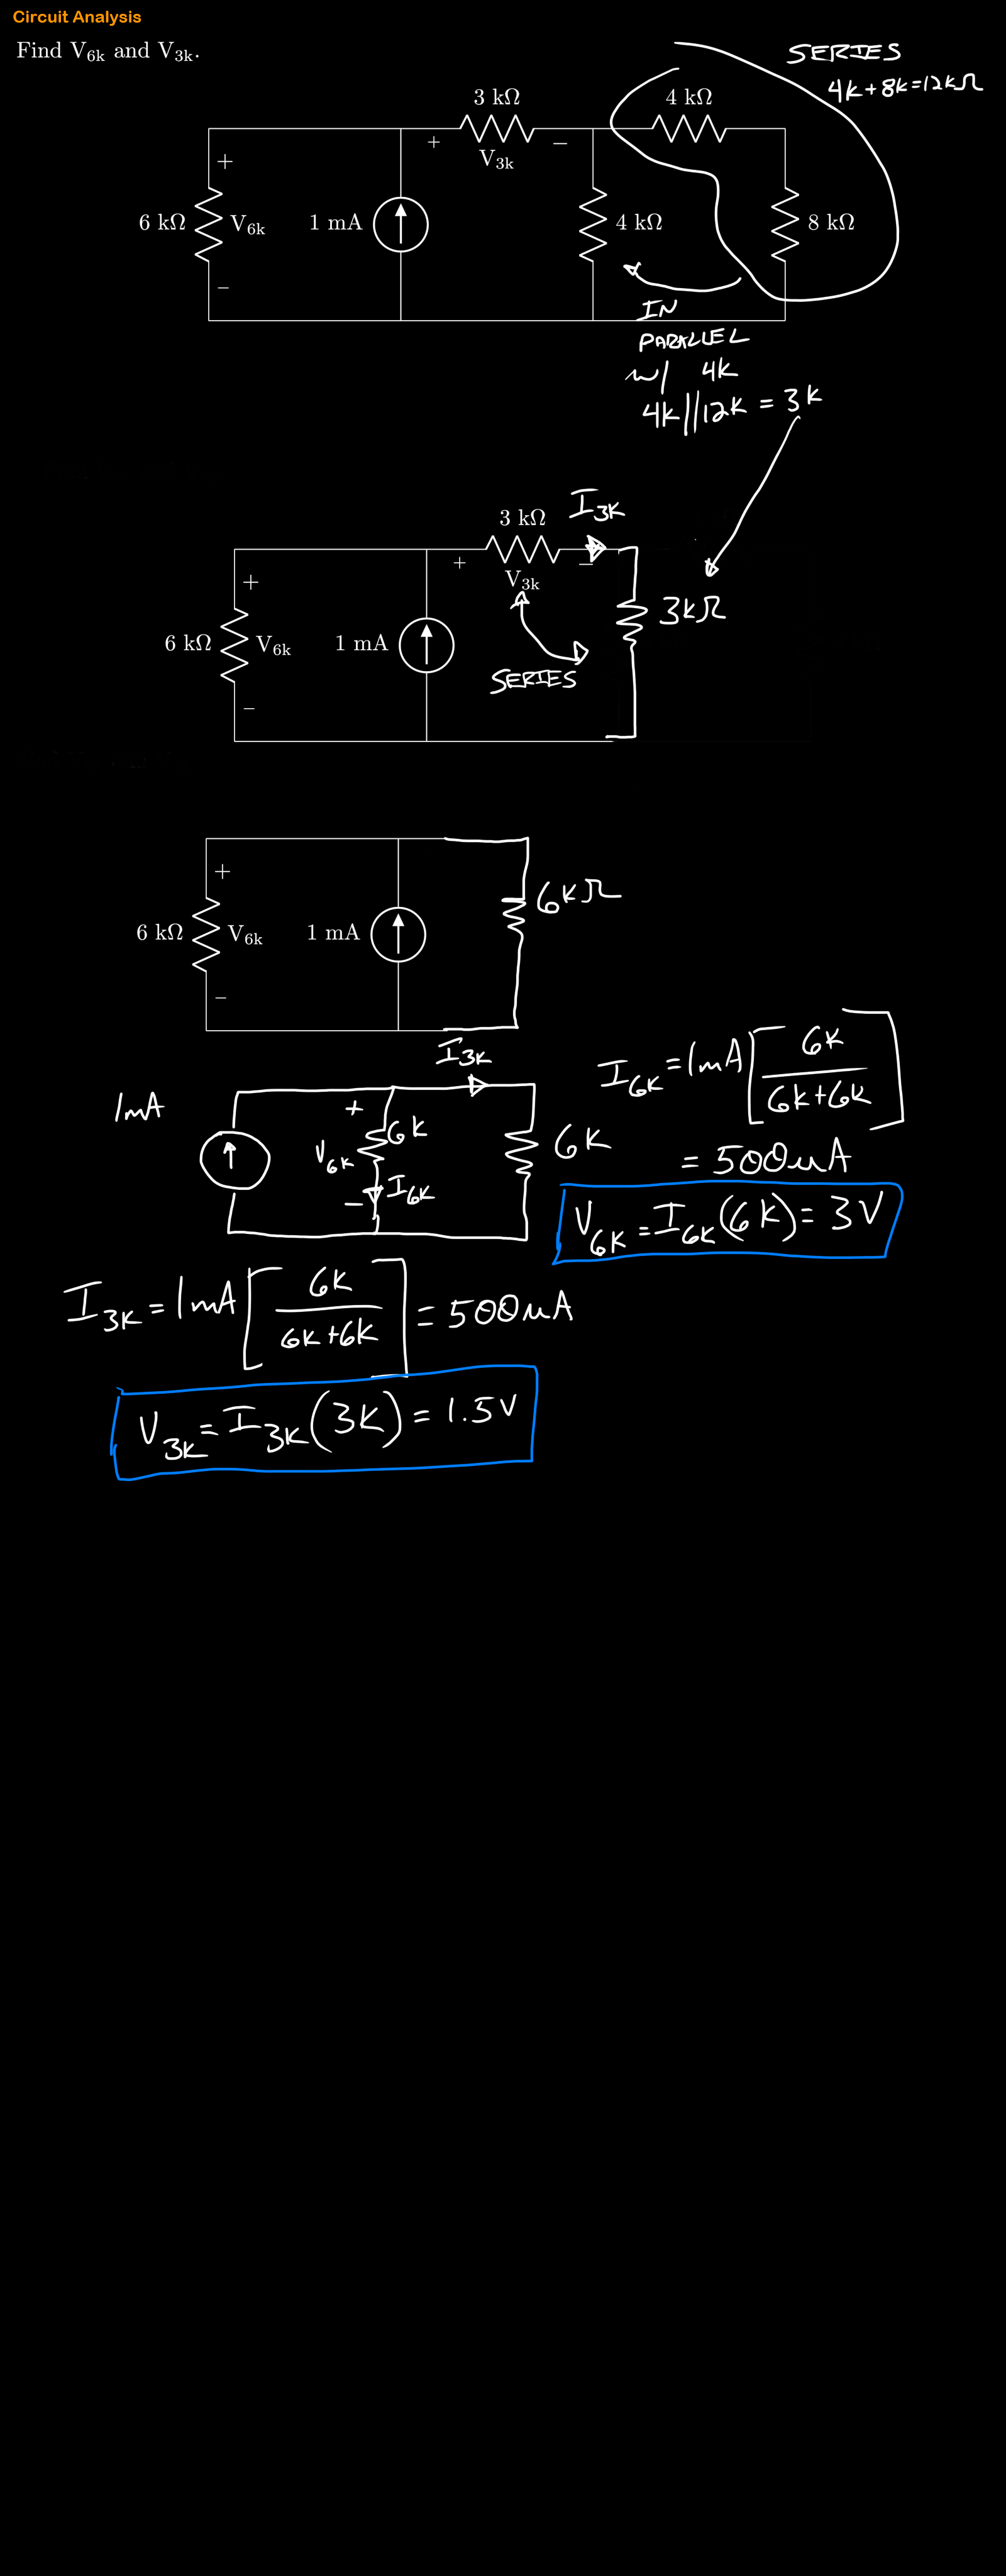 Circuit Analysis
Find V6k and V3k.
SERIES
4k+8k=12kΩ
3 kΩ
4 kΩ
+
−
V3k
+
6 kΩ
V6k
1 mA
4 kΩ
8 kΩ
−
IN
PARALLEL
w/ 4k
4k||12k = 3k
I3k
3 kΩ
+
−
V3k
+
3kΩ
6 kΩ
V6k
1 mA
SERIES
−
+
6kΩ
6 kΩ
V6k
1 mA
−
I3k
I6k=1mA[6k/(6k+6k)]
1mA
+
6k
V6k
6k
= 500uA
− I6k
V6k=I6k(6k)=3V
I3k=1mA[6k/(6k+6k)]=500uA
V3k=I3k(3k)=1.5V